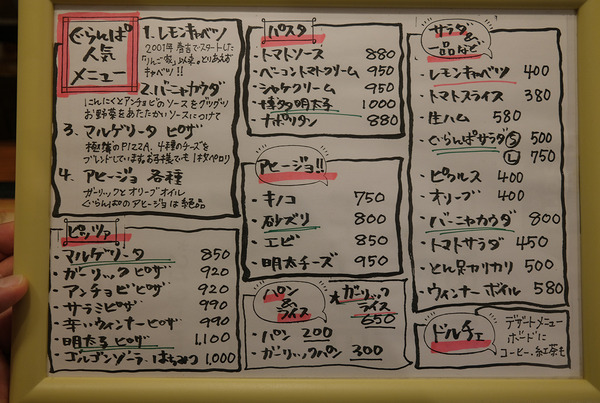 ぐらんぱ
人気
メニュー
1. レモンキャベツ
2001年 春吉でスタートした
「りんご家」以来。とりあえず
キャベツ!!
2. バーニャカウダ
にんにくとアンチョビのソースをグツグツ
お野菜をあたたかいソースにつけて
3. マルゲリータ ピザ
極薄のPIZZA. 4種のチーズを
ブレンドしています。お子様でも1枚ペロリ
4. アヒージョ 各種
ガーリックとオリーブオイル
ぐらんぱのアヒージョは絶品
ピッツァ
・マルゲリータ 850
・ガーリックピザ 920
・アンチョビピザ 920
・サラミピザ 990
・辛いウィンナーピザ 990
・明太子ピザ 1,100
・ゴルゴンゾーラ・はちみつ 1,000
パスタ
・トマトソース 880
・ベーコントマトクリーム 950
・シャケクリーム 950
・博多明太子 1000
・ナポリタン 880
アヒージョ!!
・キノコ 750
・砂ズリ 800
・エビ 850
・明太チーズ 950
パン
&
ライス
★ガーリック
ライス
650
・パン 200
・ガーリックパン 300
サラダ
&
一品など
・レモンキャベツ 400
・トマトスライス 380
・生ハム 580
・ぐらんぱサラダ Ⓢ 500
Ⓛ 750
・ピクルス 400
・オリーブ 400
・バーニャカウダ 800
・トマトサラダ 450
・とん足カリカリ 500
・ウィンナーボイル 580
ドルチェ
デザートメニュー
ボードに
コーヒー・紅茶も